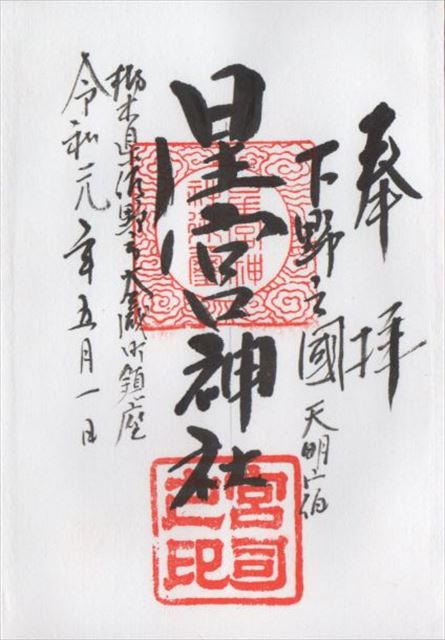 奉拝
下野之國 天明宿
星宮神社
栃木県佐野市大蔵町鎮座
令和元年五月一日
宮司
之印